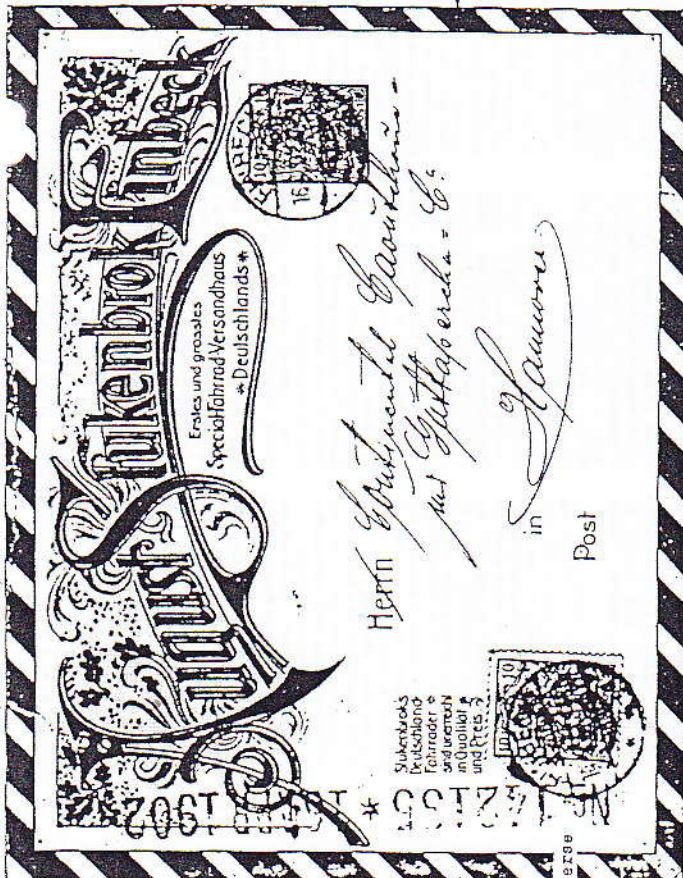 August Stukenbrok Einbeck
Erstes und grosstes
Special-Fahrrad-Versandhaus
* Deutschlands *
Herrn Continental Caoutchouc-
und Guttapercha-Co.
in Hannover
Post
Stukenbroks
Deutschland-
Fahrräder
sind unerreicht
in Qualität
und Preis
1902
10 10